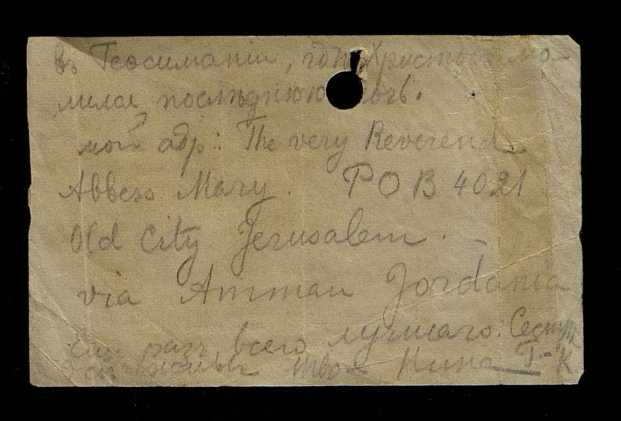 въ Геѳсиманіи, гдѣ Христосъ мо
лился послѣднюю ночь.
мой адр: The very Reverend
Abbess Mary. P O B 4021
Old City Jerusalem.
via Amman Jordania
разъ всего лучшаго.
твоя Нина Т.-К